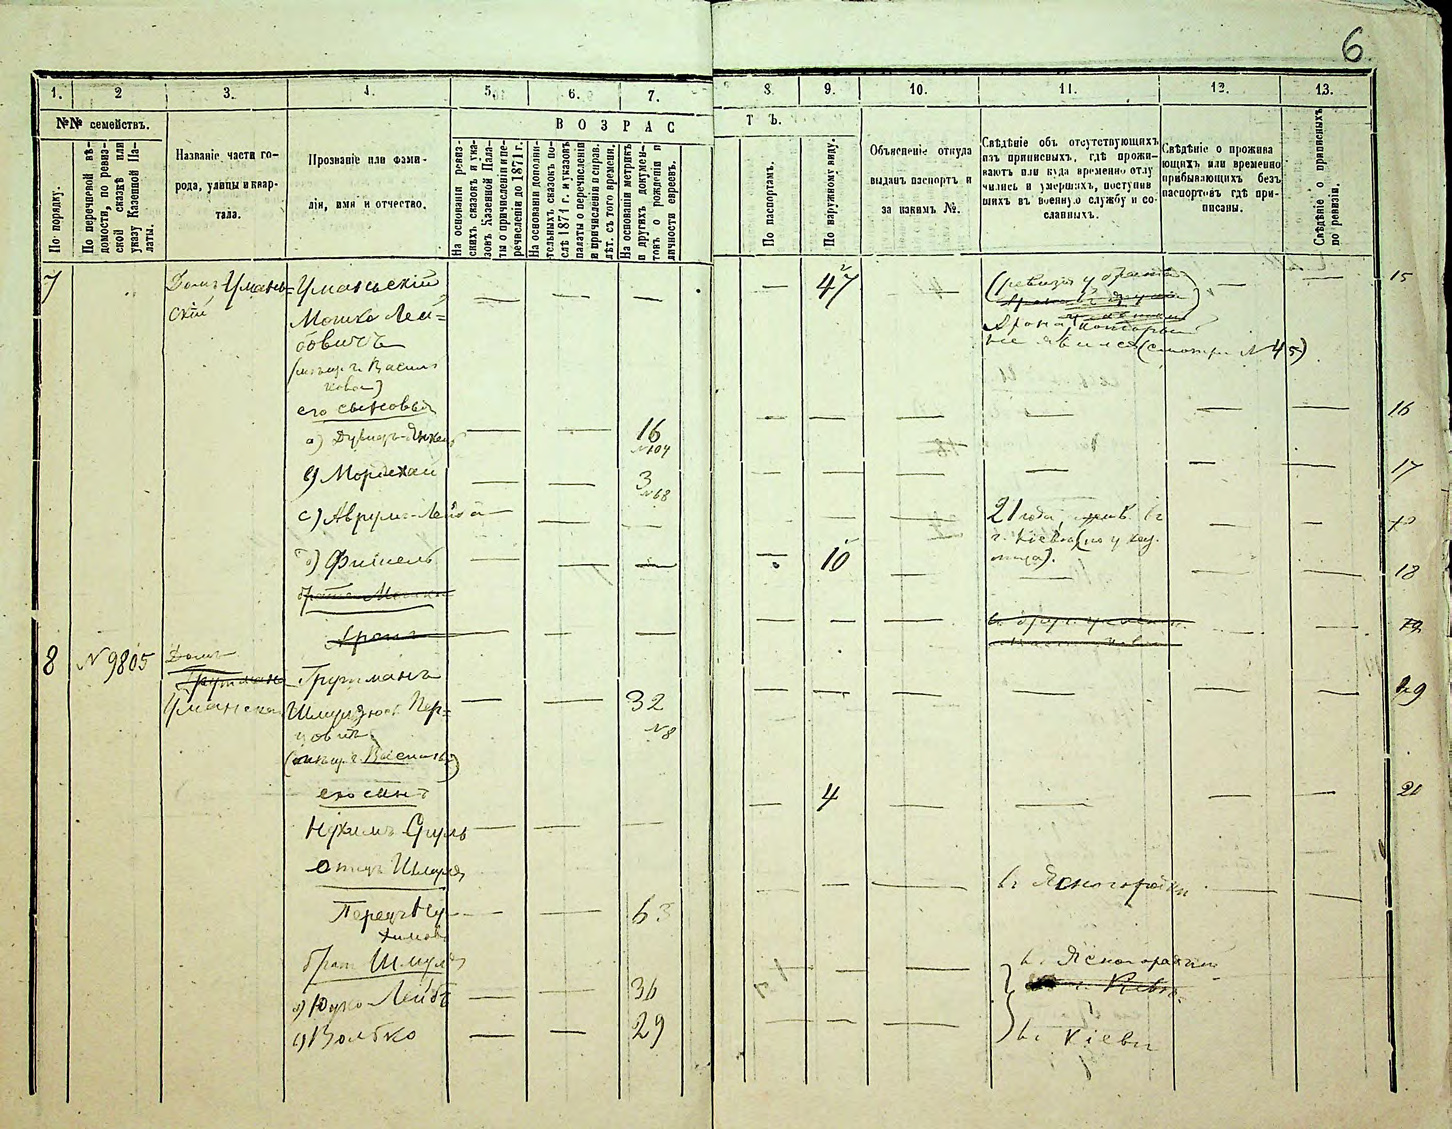 6
1. 2 3. 4. 5. 6. 7. 8. 9. 10. 11. 12. 13.
№№ семействъ.
По порядку.
По перечневой вѣ-
домости, по ревиз-
ской сказкѣ или
указу Казенной Па-
латы.
Названіе части го-
рода, улицы и квар-
тала.
Прозваніе или фами-
лія, имя и отчество.
ВОЗРАСТЪ.
На основаніи ревиз-
скихъ сказокъ и ука-
зовъ Казенной Пала-
ты о причисленіи и пе-
речисленіи до 1871 г.
На основаніи дополни-
тельныхъ сказокъ по-
слѣ 1871 г. и указовъ
палаты о перечисленіи
и причисленіи и справ.
лѣт. съ того времени.
На основаніи метрикъ
и другихъ докумен-
товъ о рожденіи и
личности евреевъ.
По паспортамъ.
По наружному виду.
Объясненіе откуда
выданъ паспортъ и
за какимъ №.
Свѣдѣніе объ отсутствующихъ
изъ приписныхъ, гдѣ прожи-
ваютъ или куда временно отлу
чились и умершихъ, поступив
шихъ въ военную службу и со-
сланныхъ.
Свѣдѣніе о прожива
ющихъ или временно
прибывающихъ безъ
паспортовъ гдѣ при-
писаны.
Свѣдѣніе о приписныхъ
по ревизіи.
7 Домъ Умань= Уманьскій 47 15
скій
Мошко Лей=
бовичъ
Арона, который
не явился (смотри № 45)
(мѣщ. г. Василь
кова)
его сыновья 16
а) Дувидъ-Янкель 16
№104
в) Мордехай 3 17
№68
с) Аврумъ-Лейба 21 года,
г. Кіевѣ
д) Фишель 10 18
братъ Мошки
Аронъ
8 №9805 Домъ
Грутманъ Грутманъ 19
Уманска Шмуль Пер=
цовичъ 32
№8
(мѣщ. г. Василь)
его сынъ 4 20
Нухимъ Сруль
отецъ Шмуля
въ Ясногородки
Перецъ Ну- 63
химов
братъ Шмуля въ Ясногородки
а) Юдко Лейбъ 36 г. Кіевѣ
в) Волько 29 въ Кіевѣ